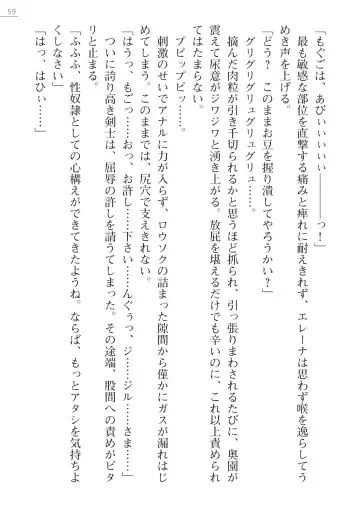 59
「もぐごは、あびぃぃぃぃぃ――――っ！」
最も敏感な部位を直撃する痛みと痺れに耐えきれず、エレーナは思わず喉を逸らしてう
めき声を上げる。
「どう？　このままお豆を握り潰してやろうかい？」
グリグリグリュグリュグリュ……。
摘んだ肉粒が引き千切られるかと思うほど抓られ、引っ張りまわされるたびに、奥園が
震えて尿意がジワジワと湧き上がる。放屁を堪えるだけでも辛いのに、これ以上責められ
てはたまらない。
プピップピッ……。
刺激のせいでアナルに力が入らず、ロウソクの詰まった隙間から僅かにガスが漏れはじ
めてしまう。このままでは、尻穴で支えきれない。
「はうっ、もごっ……おっ、お許し……下さい……んぐぅっ、ジ・ルジル……さま……」
ついに誇り高き剣士は、屈辱の許しを請うてしまった。その途端、股間への責めがピタ
リと止まる。
「ふふふ、性奴隷としての心構えができてきたようね。ならば、もっとアタシを気持ちよ
くしなさい」
「はっ、はひぃ……」